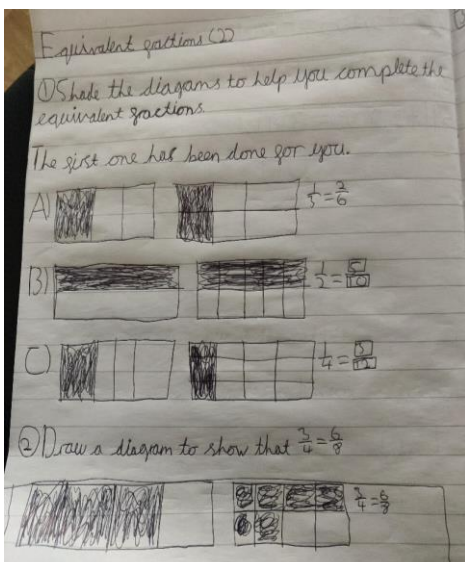 Equivalent fractions (2)
① Shade the diagrams to help you complete the
equivalent fractions.
The first one has been done for you.
A) 1/3 = 2/6
B) 1/2 = 5/10
C) 1/4 = 3/12
② Draw a diagram to show that 3/4 = 6/8
3/4 = 6/8